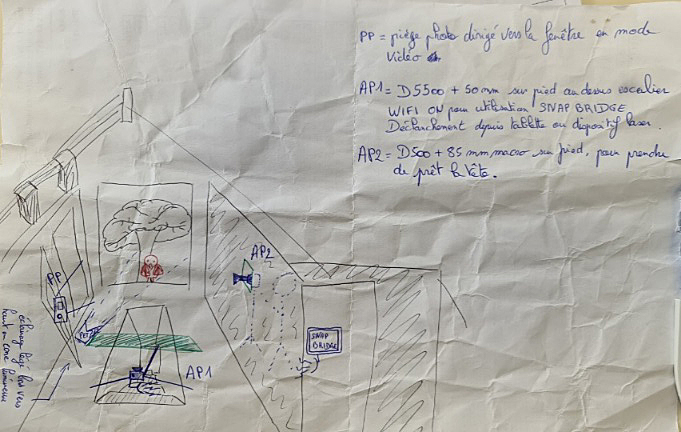 PP = piège photo dirigé vers la fenêtre en mode
vidéo
AP1 = D5500 + 50 mm sur pied au dessus escalier
WIFI ON pour utilisation SNAP BRIDGE
Déclanchement depuis tablette ou dispositif laser.
AP2 = D500 + 85 mm macro sur pied, pour prendre
de prêt la tête.
AP2
PP
SNAP
BRIDGE
AP1
vers
haut en cone lumineux